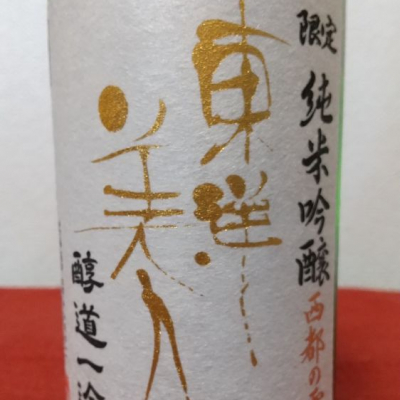 限定 純米吟醸 西都の
東洋
美人
醇道一途